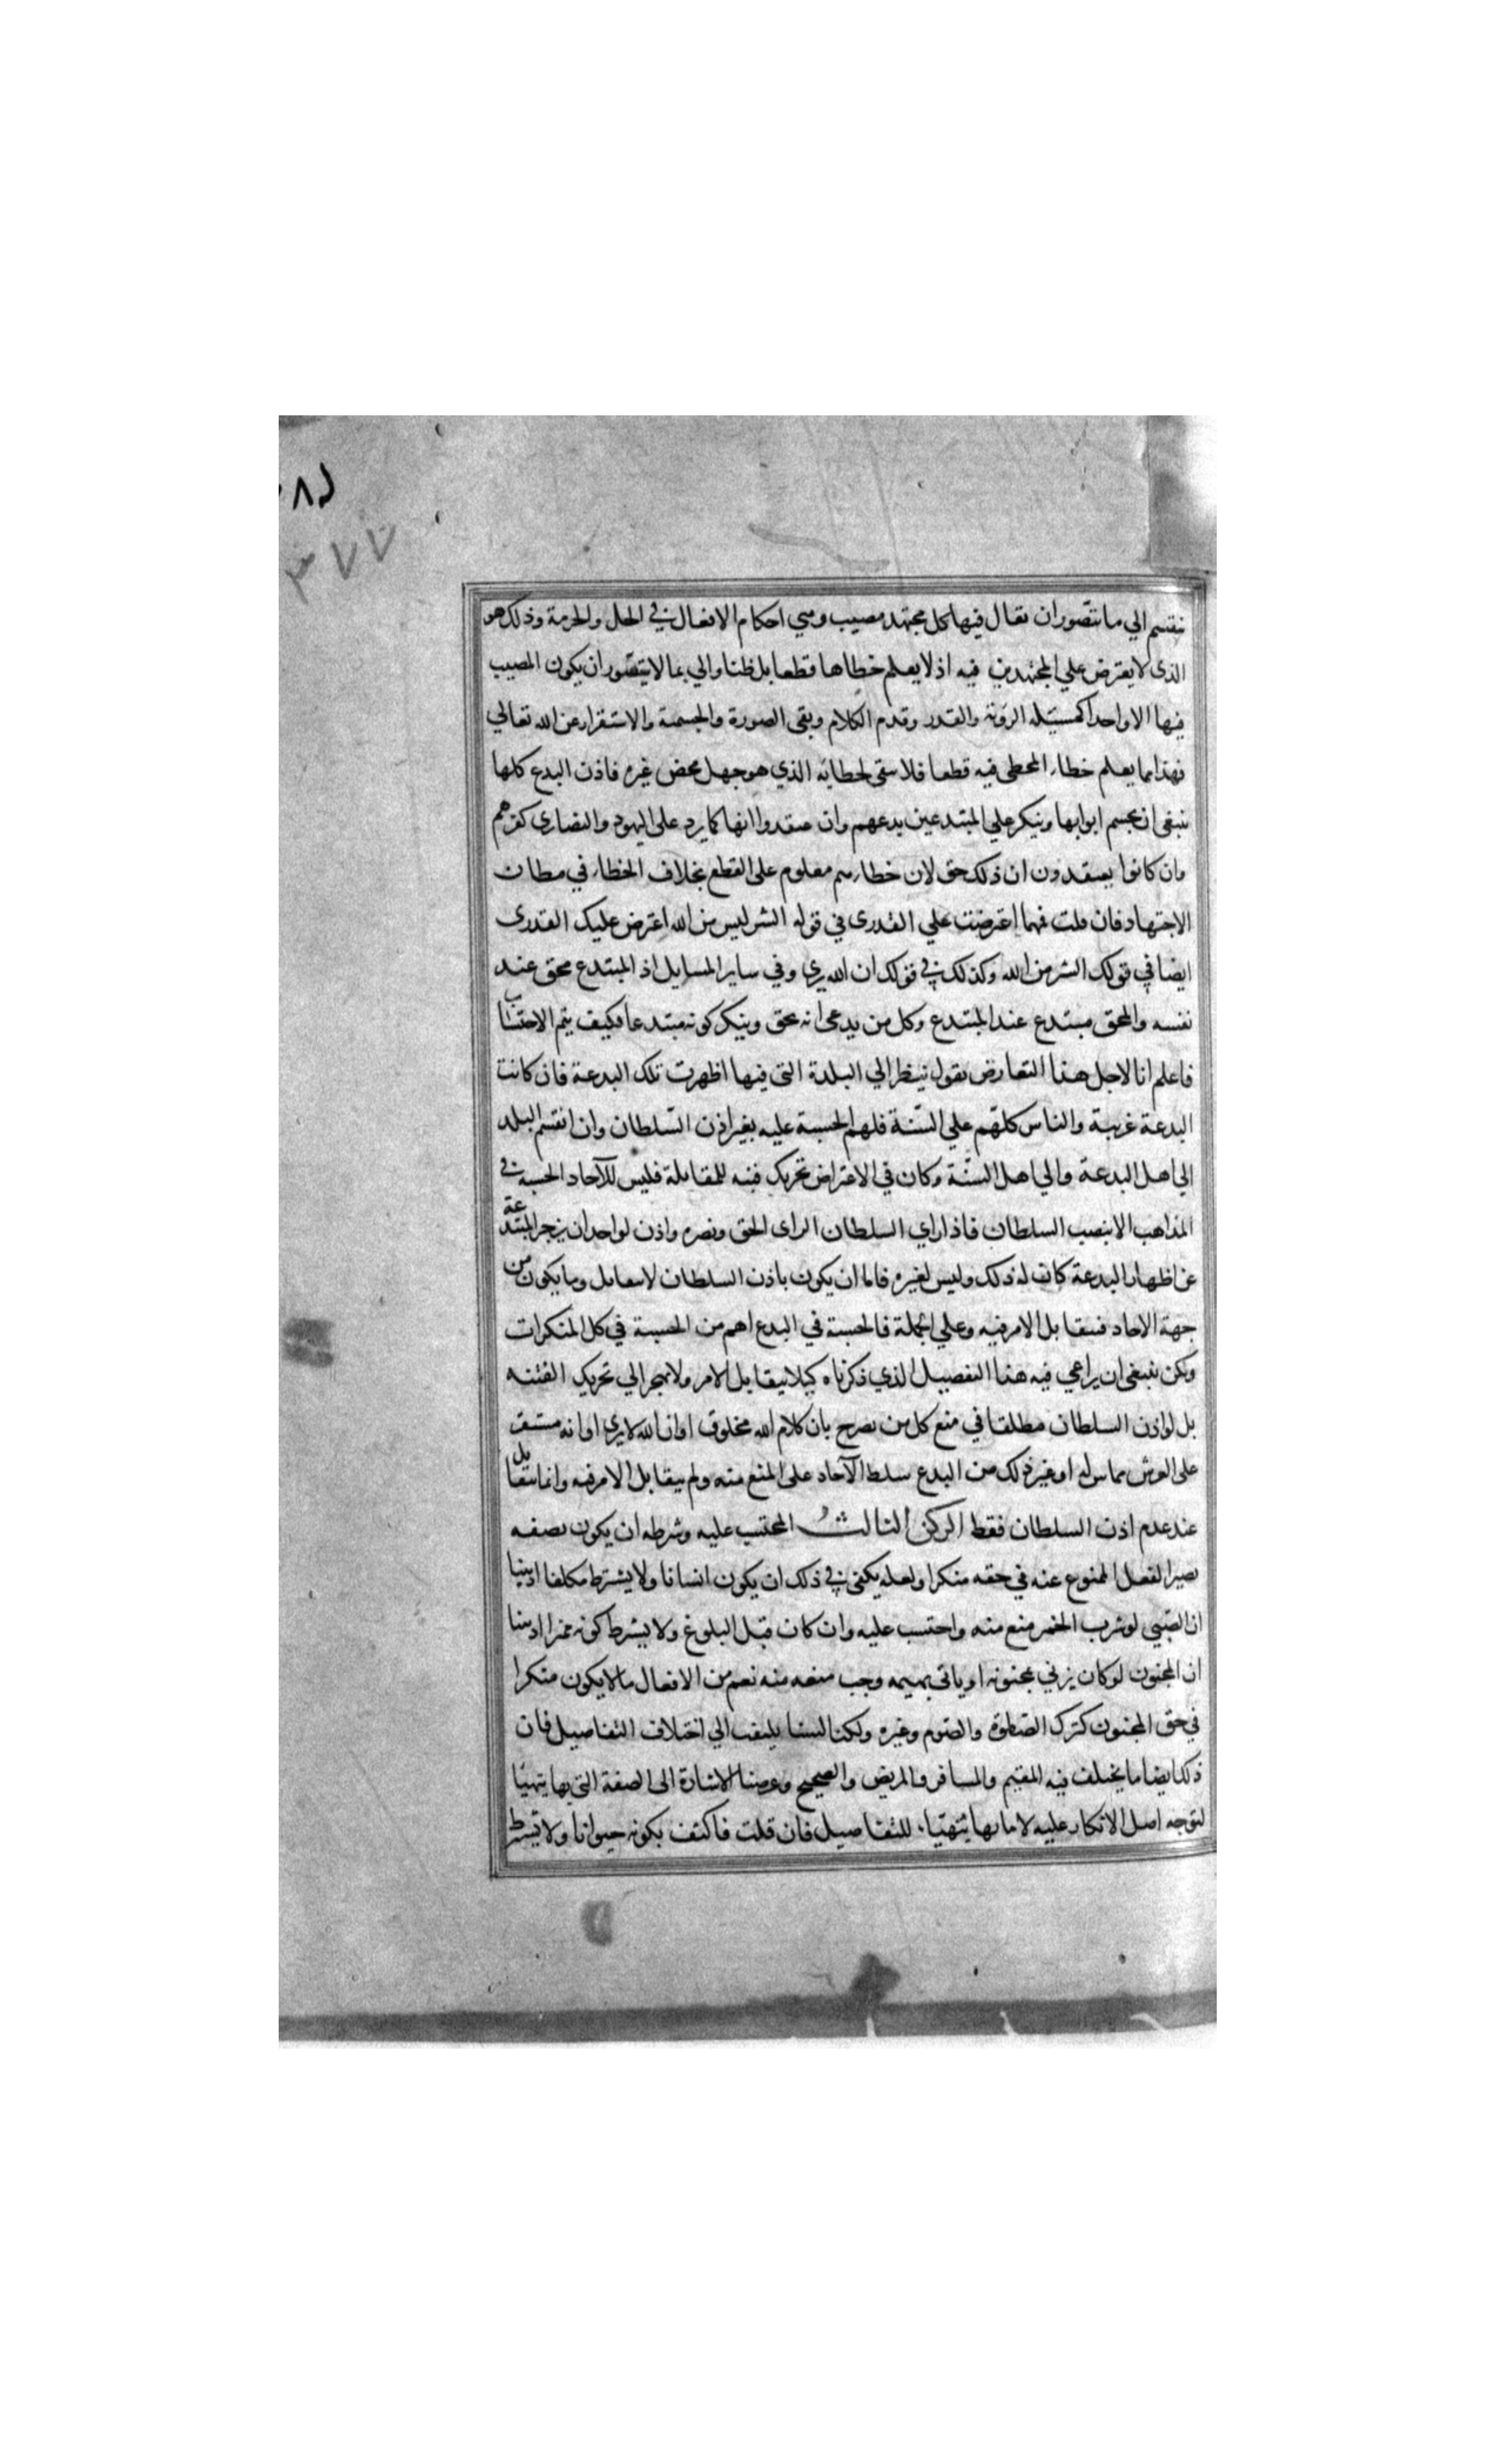 ٣٧٧
ينقسم الي ما يتصور ان يقال فيها كل مجتهد مصيب وهي احكام الافعال في الحل والحرمة وذلك هو
الذى لا يعترض علي المجتهدين فيه اذ لا يعلم خطاها قطعا بل ظنا والي بما لا يتصور ان يكون المصيب
فيها الا واحدا كمسيلة الروية والقدر وقدم الكلام ونفى الصورة والجسمية والاستقرار عن الله تعالي
فهذا مما يعلم خطاء المخطى فيه قطعا فلا يبقى لخطايه الذي هو جهل محض غيره فاذن البدع كلها
ينبغى ان يحسم ابوابها وينكر علي المبتدعين بدعهم وان اعتقدوا انها كما يرد على اليهود والنصارى كفرهم
وان كانوا يعتقدون ان ذلك حق لان خطاءهم معلوم على القطع بخلاف الخطاء في مظان
الاجتهاد فان قلت فمهما اعترضت علي القدرى في قوله الشر ليس من الله اعترض عليك القدرى
ايضا في قولك الشر من الله وكذلك في قولك ان الله يرى وفي ساير المسايل اذ المبتدع محق عند
نفسه والمحق مبتدع عند المبتدع وكل من يدعى انه محق وينكر كونه مبتدعا فكيف يتم الاحتساب
فاعلم انا لاجل هذا التعارض نقول ينظر الي البلدة التى فيها اظهرت تلك البدعة فان كانت
البدعة غريبة والناس كلهم علي السنة فلهم الحسبة عليه بغير اذن السلطان وان انقسم البلد
الي اهل البدعة والي اهل السنة وكان في الاعتراض تحريك فتنه للمقابلة فليس للآحاد الحسبة في
المذاهب الا بنصب السلطان فاذا راي السلطان الراى الحق ونصره واذن لواحد ان يزجر المبتدعة
عن اظهار البدعة كان له ذلك وليس لغيره فاما ان يكون باذن السلطان لا يتقابل وما يكون من
جهة الاحاد فيتقابل الامر فيه وعلي الجملة فالحسبة في البدع اهم من الحسبة في كل المنكرات
ولكن ينبغى ان يراعي فيه هذا التفصيل الذي ذكرناه كيلا يتقابل الامر ولا ينجر الي تحريك الفتنه
بل لو اذن السلطان مطلقا في منع كل من يصرح بان كلام الله مخلوق او ان الله لا يرى او انه مستقر
على العرش مماس له او غير ذلك من البدع سلط الآحاد على المنع منه ولم يتقابل الامر فيه وانما يتقابل
عند عدم اذن السلطان فقط الركن الثالث المحتسب عليه وشرطه ان يكون بصفه
يصير الفعل الممنوع عنه في حقه منكرا ولعله يكفى في ذلك ان يكون انسانا ولا يشترط مكلفا اذ بينا
ان الصبي لو شرب الخمر منع منه واحتسب عليه وان كان قبل البلوغ ولا يشرط كونه مميزا اذ بينا
ان المجنون لو كان يزني بمجنونه او ياتى بهيمه وجب منعه منه نعم من الافعال ما لا يكون منكرا
في حق المجنون كترك الصلوة والصوم وغيره ولكنا لسنا يلتفت الي اختلاف التفاصيل فان
ذلك ايضا ما يختلف فيه المقيم والمسافر والمريض والصحيح وغرضنا الاشارة الى الصفة التى بها يتهيا
لتوجه اصل الانكار عليه لا ما بها يتهيا للتفاصيل فان قلت فاكتف بكونه حيوانا ولا تشترط